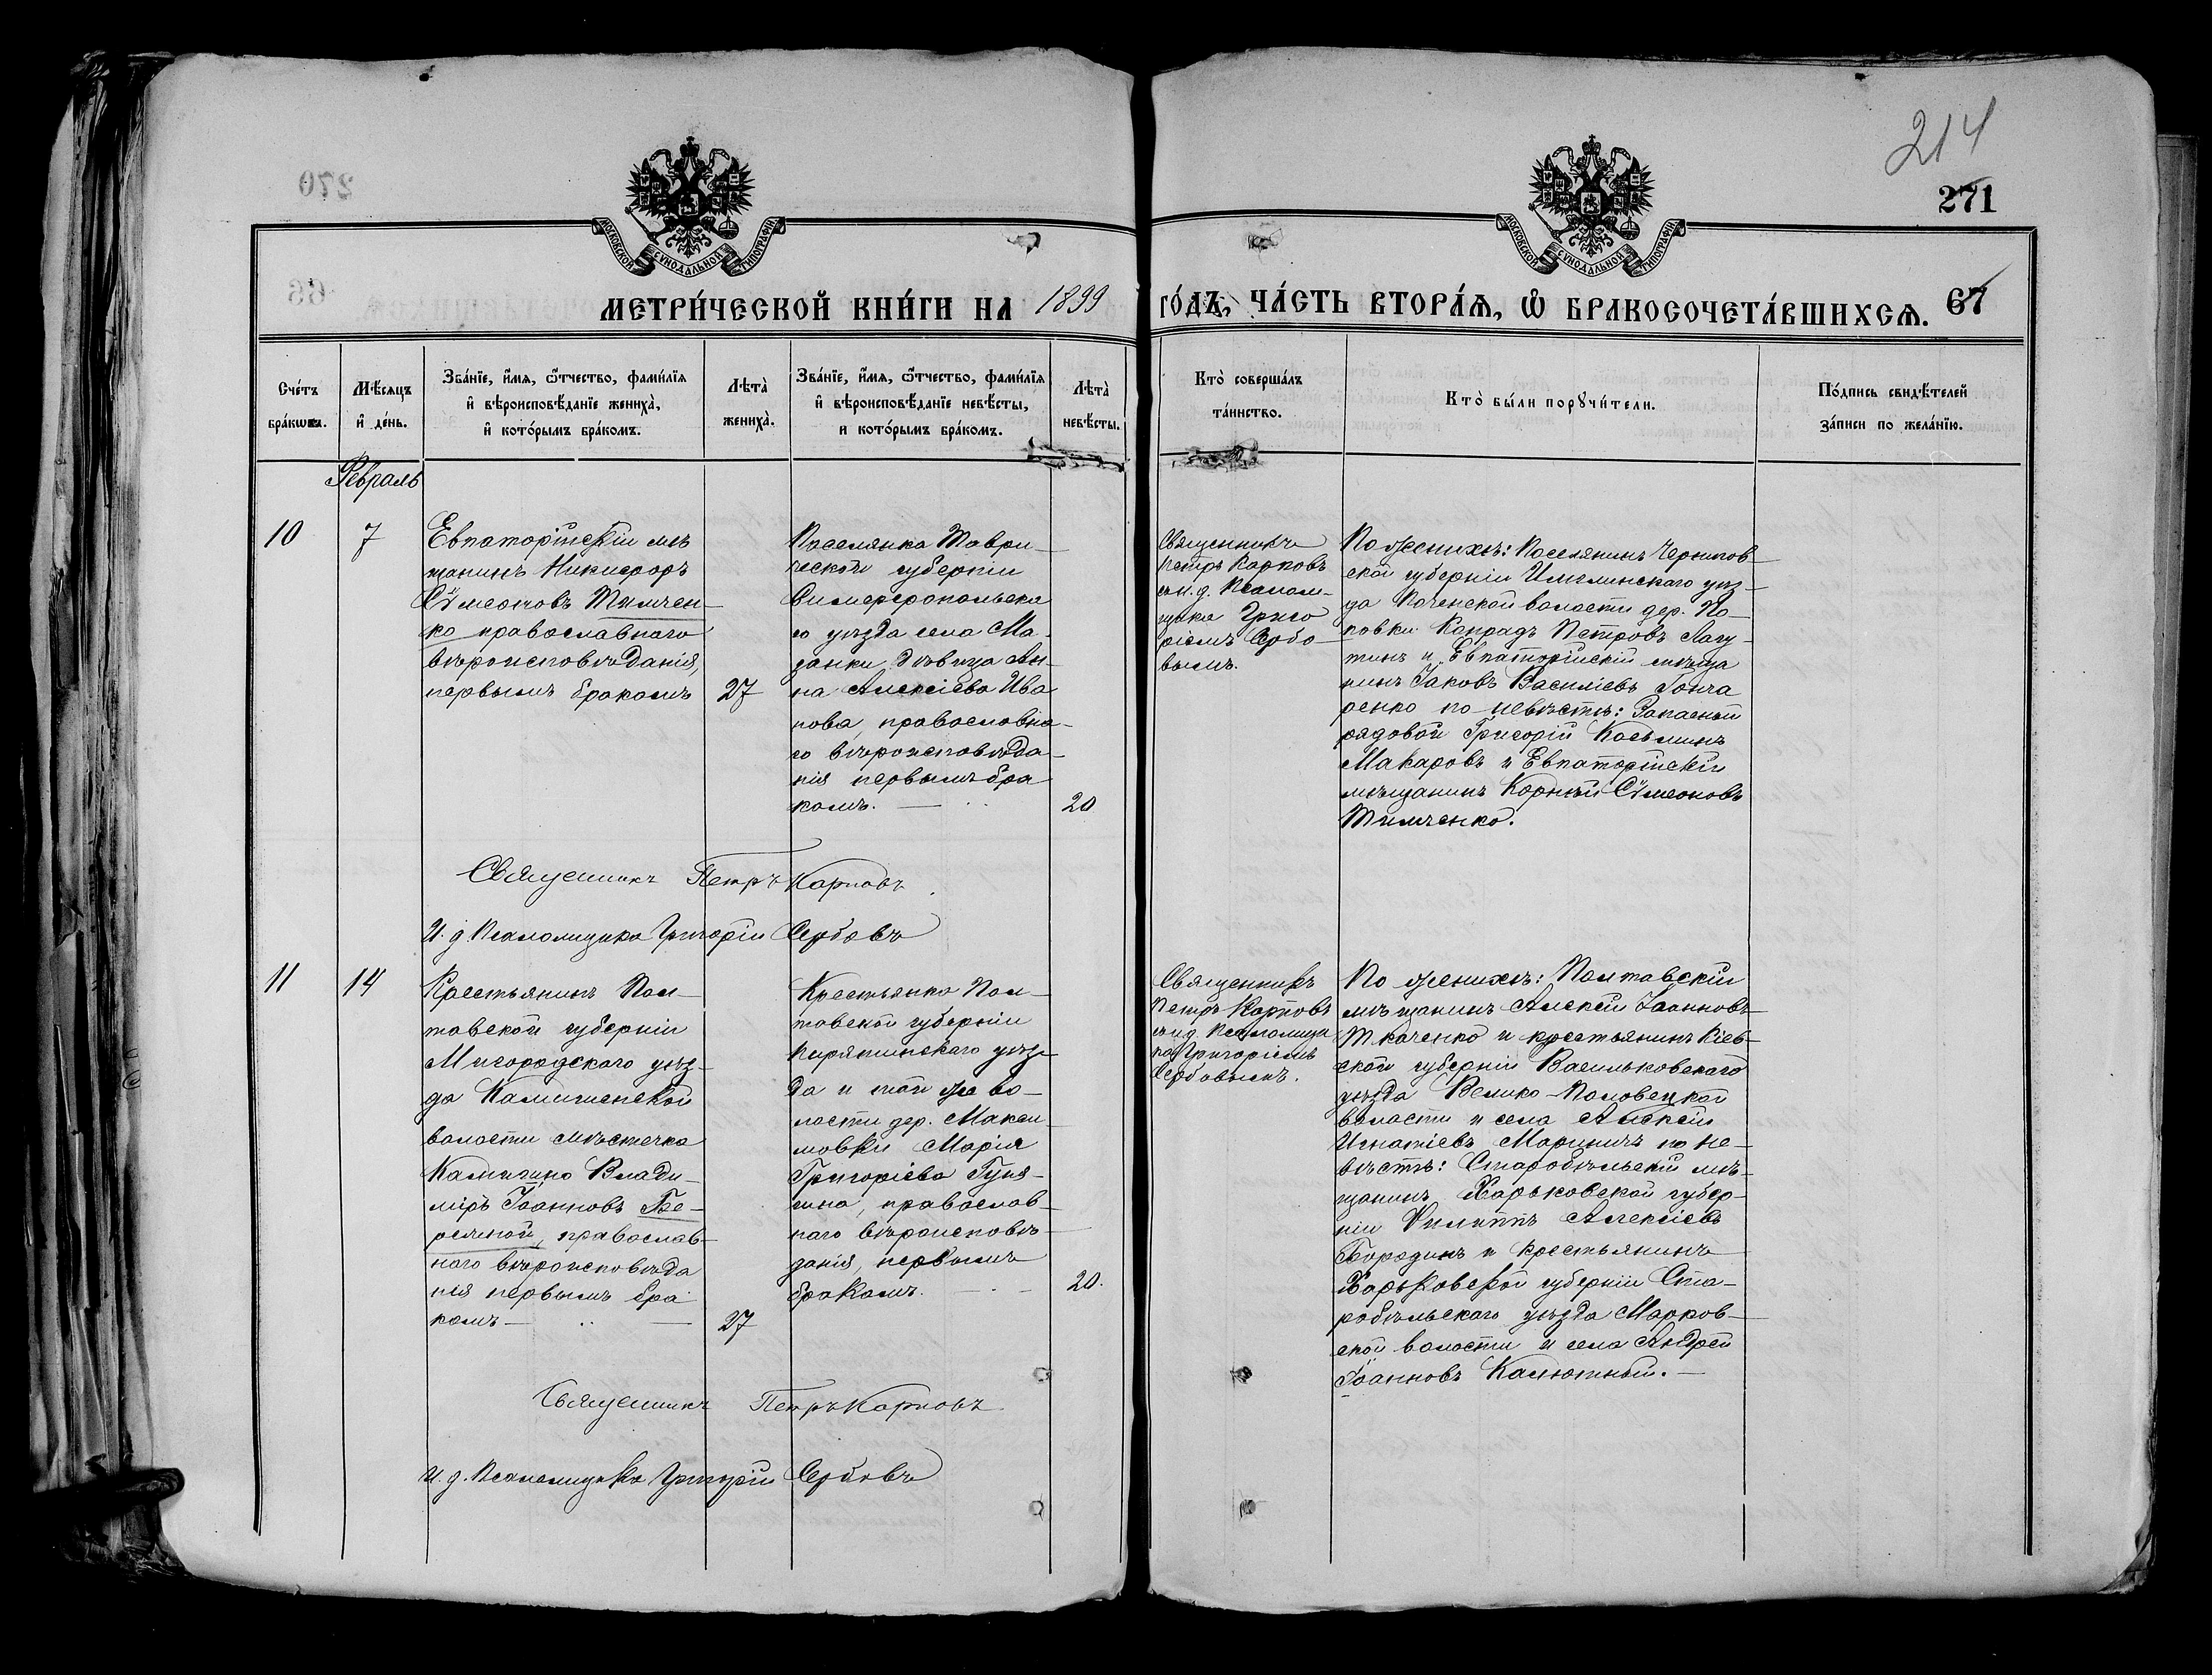 214
271
МОСКОВСКОЙ СѴНОДАЛЬНОЙ ТИПОГРАФІИ
МОСКОВСКОЙ СѴНОДАЛЬНОЙ ТИПОГРАФІИ
МЕТРИ́ЧЕСКОЙ КНИ́ГИ НА 1899
ГО́ДЪ, ЧА́СТЬ ВТОРА́Ѧ, Ѽ БРАКОСОЧЕТА́ВШИХСѦ. 67
Сче́тъ бра́кѡвъ.
Мѣ́сѧцъ и҆ де́нь.
Зва́нїе, и҆́мѧ, ѻ҆́тчество, фами́лїѧ и҆ вѣроисповѣ́данїе жениха̀, и҆ кото́рымъ бра́комъ.
Лѣта̀ жениха̀.
Зва́нїе, и҆́мѧ, ѻ҆́тчество, фами́лїѧ и҆ вѣроисповѣ́данїе невѣ́сты, и кото́рымъ бра́комъ.
Лѣта̀ невѣ́сты.
Кто̀ соверша́лъ та́инство.
Кто̀ бы́ли порꙋчи́тели.
По́дпись свидѣ́телей за́писи по жела́нїю.
Февраль
10
7
Евпаторійскій мѣ
щанинъ Никифоръ
Сѷмеоновъ Тимчен-
ко православнаго
вѣроисповѣданія,
первымъ бракомъ
27
Поселянка Таври-
ческой губерніи
Симферопольска
го уѣзда села Ма-
занки, дѣвица Ан-
на Алексіева Ива
нова, православна-
го вѣроисповѣда-
нія первымъ бра
комъ.
20
Священникъ
Петръ Карповъ
съ и. д. Псалом-
щика Григо
ріемъ Сербо
вымъ.
По женихѣ: Поселянинъ Чернигов-
ской губерніи Имглинскаго уѣз-
да Поченской волости дер. По-
повки Конрадъ Петровъ Лагу-
тинъ и Евпаторійскій мѣща
нинъ Іаковъ Василіевъ Гонча
ренко по невѣстѣ: Запасный
рядовой Григорій Косьминъ
Макаровъ и Евпаторійскій
мѣщанинъ Корнѣй Сѷмеоновъ
Тимченко.
Священникъ Петръ Карповъ
И. д. Псаломщика Григорій Сербовъ
11
14
Крестьянинъ Пол-
тавской губерніи
Миргородскаго уѣз-
да Камышенской
волости мѣстечка
Камышно Влади-
міръ Іоанновъ Бе-
резной, православ-
наго вѣроисповѣда
нія первымъ бра
комъ
27
Крестьянка Пол-
тавской губерніи
Пирятинскаго уѣз-
да и той же во-
лости дер. Макси
мовки Марія
Григоріева Гуня-
гина, православ-
наго вѣроисповѣ-
данія, первымъ
бракомъ.
20.
Священникъ
Петръ Карповъ
съ и д. Псаломщи
ка Григоріемъ
Сербовымъ.
По женихѣ: Полтавскій
мѣщанинъ Алексій Іоанновъ
Ткаченко и крестьянинъ Кіев-
ской губерніи Васильковскаго
уѣзда Велико-Половецкой
волости и села Алексій
Игнатіевъ Мариничъ по не-
вѣстѣ: Старобѣльскій мѣ-
щанинъ Харьковской губер-
ніи Филиппъ Алексіевъ
Бородинъ и крестьянинъ
Харьковской губерніи Ста-
робѣльскаго уѣзда Марков-
ской волости и села Андрей
Іоанновъ Калюжный.
Священникъ Петръ Карповъ
И. д. Псаломщика Григорій Сербовъ